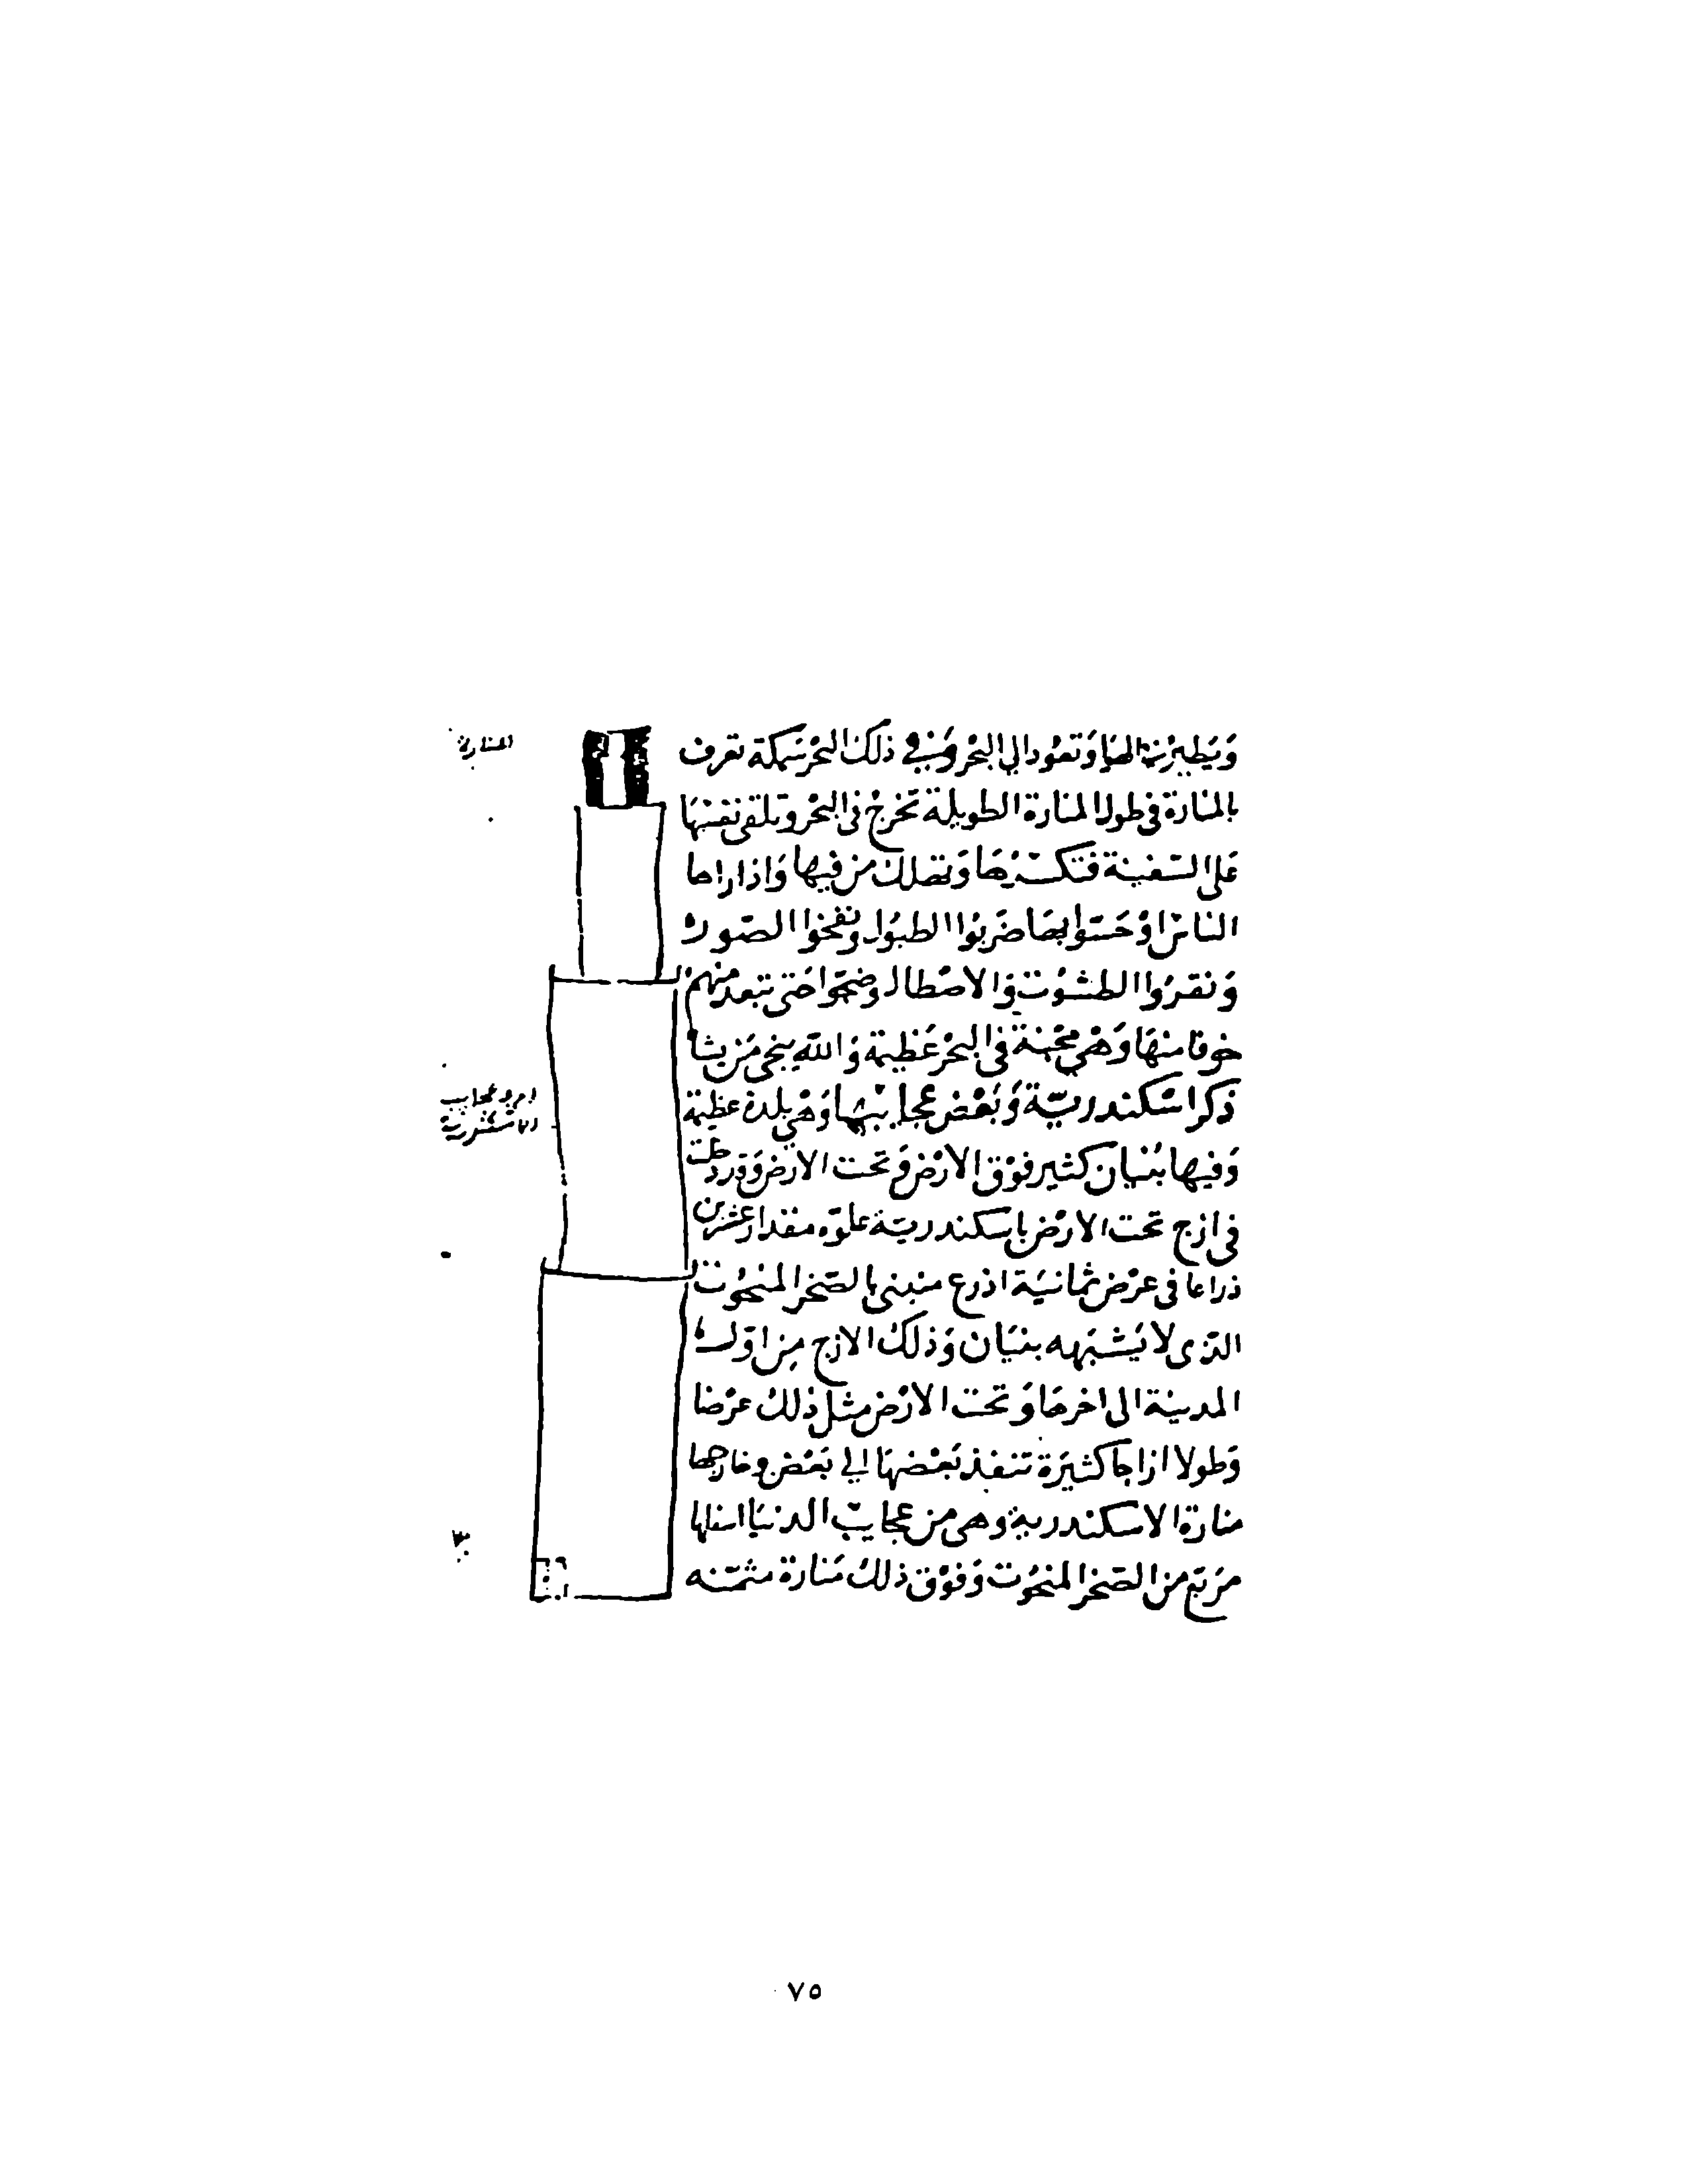 وَيَطير في الهوا وَتعُود الي البَحْر وَمِنْ في ذلكَ البَحْر سَمكة تعرف
بالمنَارَة في طول المنَارة الطويلة تخرجُ في البَحْر وتلقى نفسَها
عَلى السّفينة فتكسّرُهَا وَتهلك من فيها وَاذا راها
الناسْ اوْحَسّوا بهَا ضرَبوُا الطبُول ونفخوا الصّور
وَنقرُوا الطشوُت وَالاصْطال وضجّوا حَتى تبعد منهم
خوفا منهَا وَهْي محْنة في البَحْر عَظيمة وَالله ينجي مَنْ يشا
ذكر اسْكندريّة وَبَعْض عجايبها وَهْي بلدة عظيمة
وَفيها بُنيان كثير فوْق الارْض وَتحت الارض وَقد دخلت
في ازج تحت الارْض باسكندريّة علوّه مقدار عشرين
ذراعا في عرْض ثمانيَة اذرع مبنى بالصّخر المنحُوت
الذى لا يَشبَهه بنيَان وَذلكَ الازج مِن اوّل
المدينة الى اخرهَا وَتحت الارْض مثل ذلك عرْضا
وَطولا ازاجا كثيرَة تنفذ بَعْضهَا الي بَعْض وخارجها
منارَة الاسكندرية وهى من عجايب الدنيَا اسفلها
مرَبّع من الصّخر المنحُوت وَفوْق ذلكَ مَنارة مثمّنه
المنارة
عجايب
الاسكندرية
٧٥